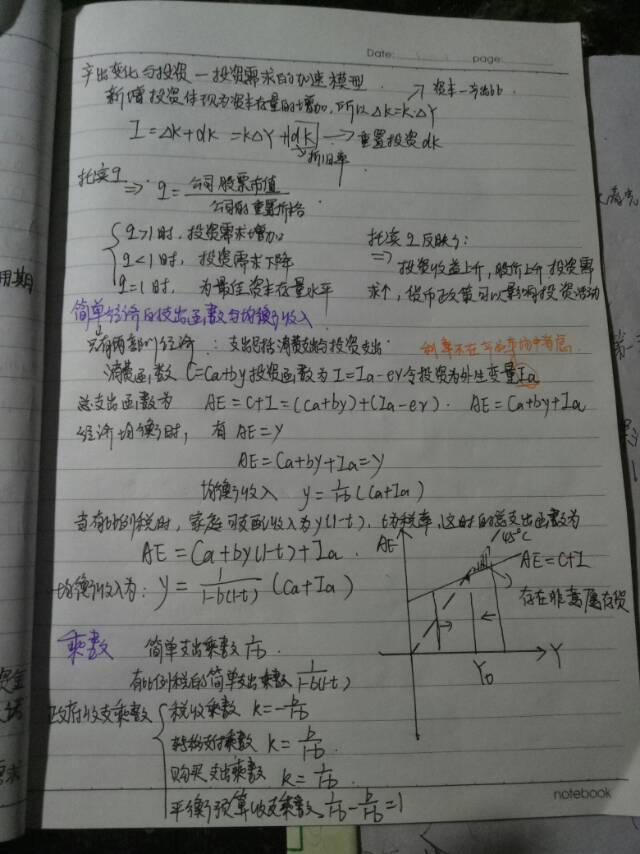 Date: page:
产出变化与投资—投资需求的加速模型
新增投资体现为资本存量的增加，所以Δk=k·ΔY → 资本—产出比
I=Δk+dk=kΔY+dk → 重置投资dk
折旧率
托宾q ⇒ q=公司股票市值/公司的重置价格
q>1时，投资需求增加
q<1时，投资需求下降
q=1时，为最佳资本存量水平
托宾q反映了：
⇒ 投资收益上升，股价上升投资需
求个，货币政策可以影响投资活动
简单经济的支出函数与均衡收入
只有两部门经济：支出包括消费支出与投资支出
消费函数 C=Ca+by 投资函数为 I=Ia-er 令投资为外生变量Ia
总支出函数为 AE=C+I=(Ca+by)+(Ia-er). AE=Ca+by+Ia
经济均衡时，有 AE=Y
AE=Ca+by+Ia=Y
均衡收入 y=1/1-b(Ca+Ia)
当有比例税时，家庭可支配收入为y(1-t)，t为税率，这时的总支出函数为
AE=Ca+by(1-t)+Ia.
均衡收入为：y=1/1-b(1-t) (Ca+Ia)
AE
45°C
AE=C+I
存在非意属存货
Y0
Y
乘数 简单支出乘数 1/1-b
有比例税的简单支出乘数 1/1-b(1-t)
政府收支乘数
税收乘数 k=-b/1-b
转移支付乘数 k=b/1-b.
购买支出乘数 k=1/1-b
平衡预算收支乘数 1/1-b-b/1-b=1
notebook
用期
资金